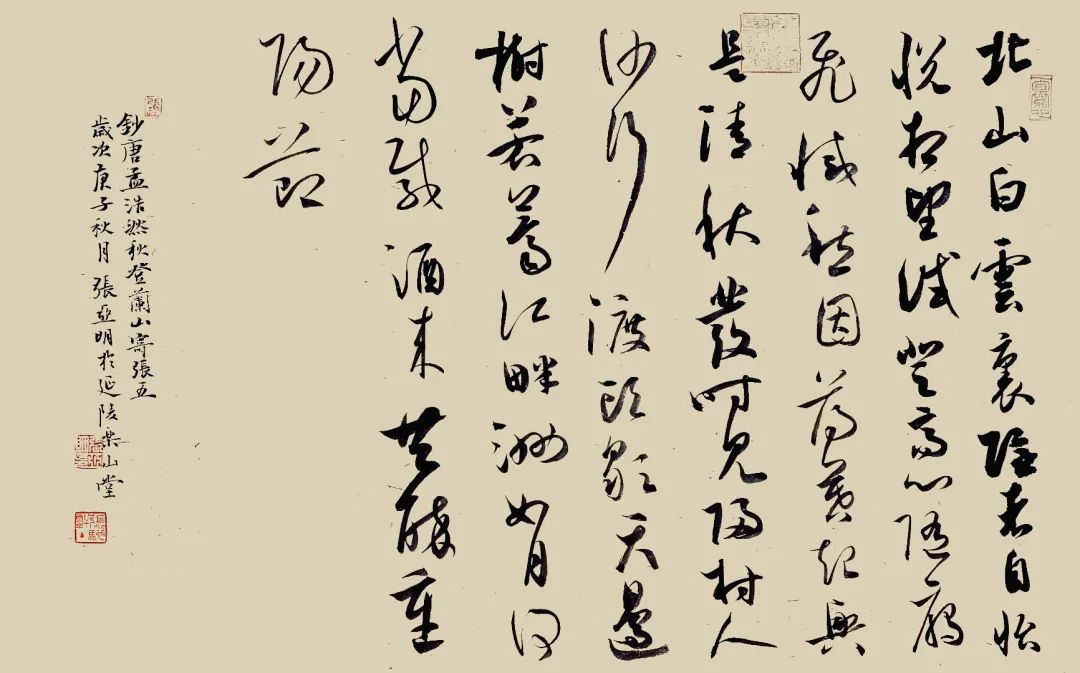 北山白雲裏隱者自怡
悅相望試登高心隨雁
飛滅愁因薄暮起興
是清秋發時見歸村人
沙行渡頭歇天邊
樹若薺江畔洲如月何
當載酒來共醉重
陽節
鈔唐孟浩然秋登蘭山寄張五
歲次庚子秋月張亞明於延陵樂山堂